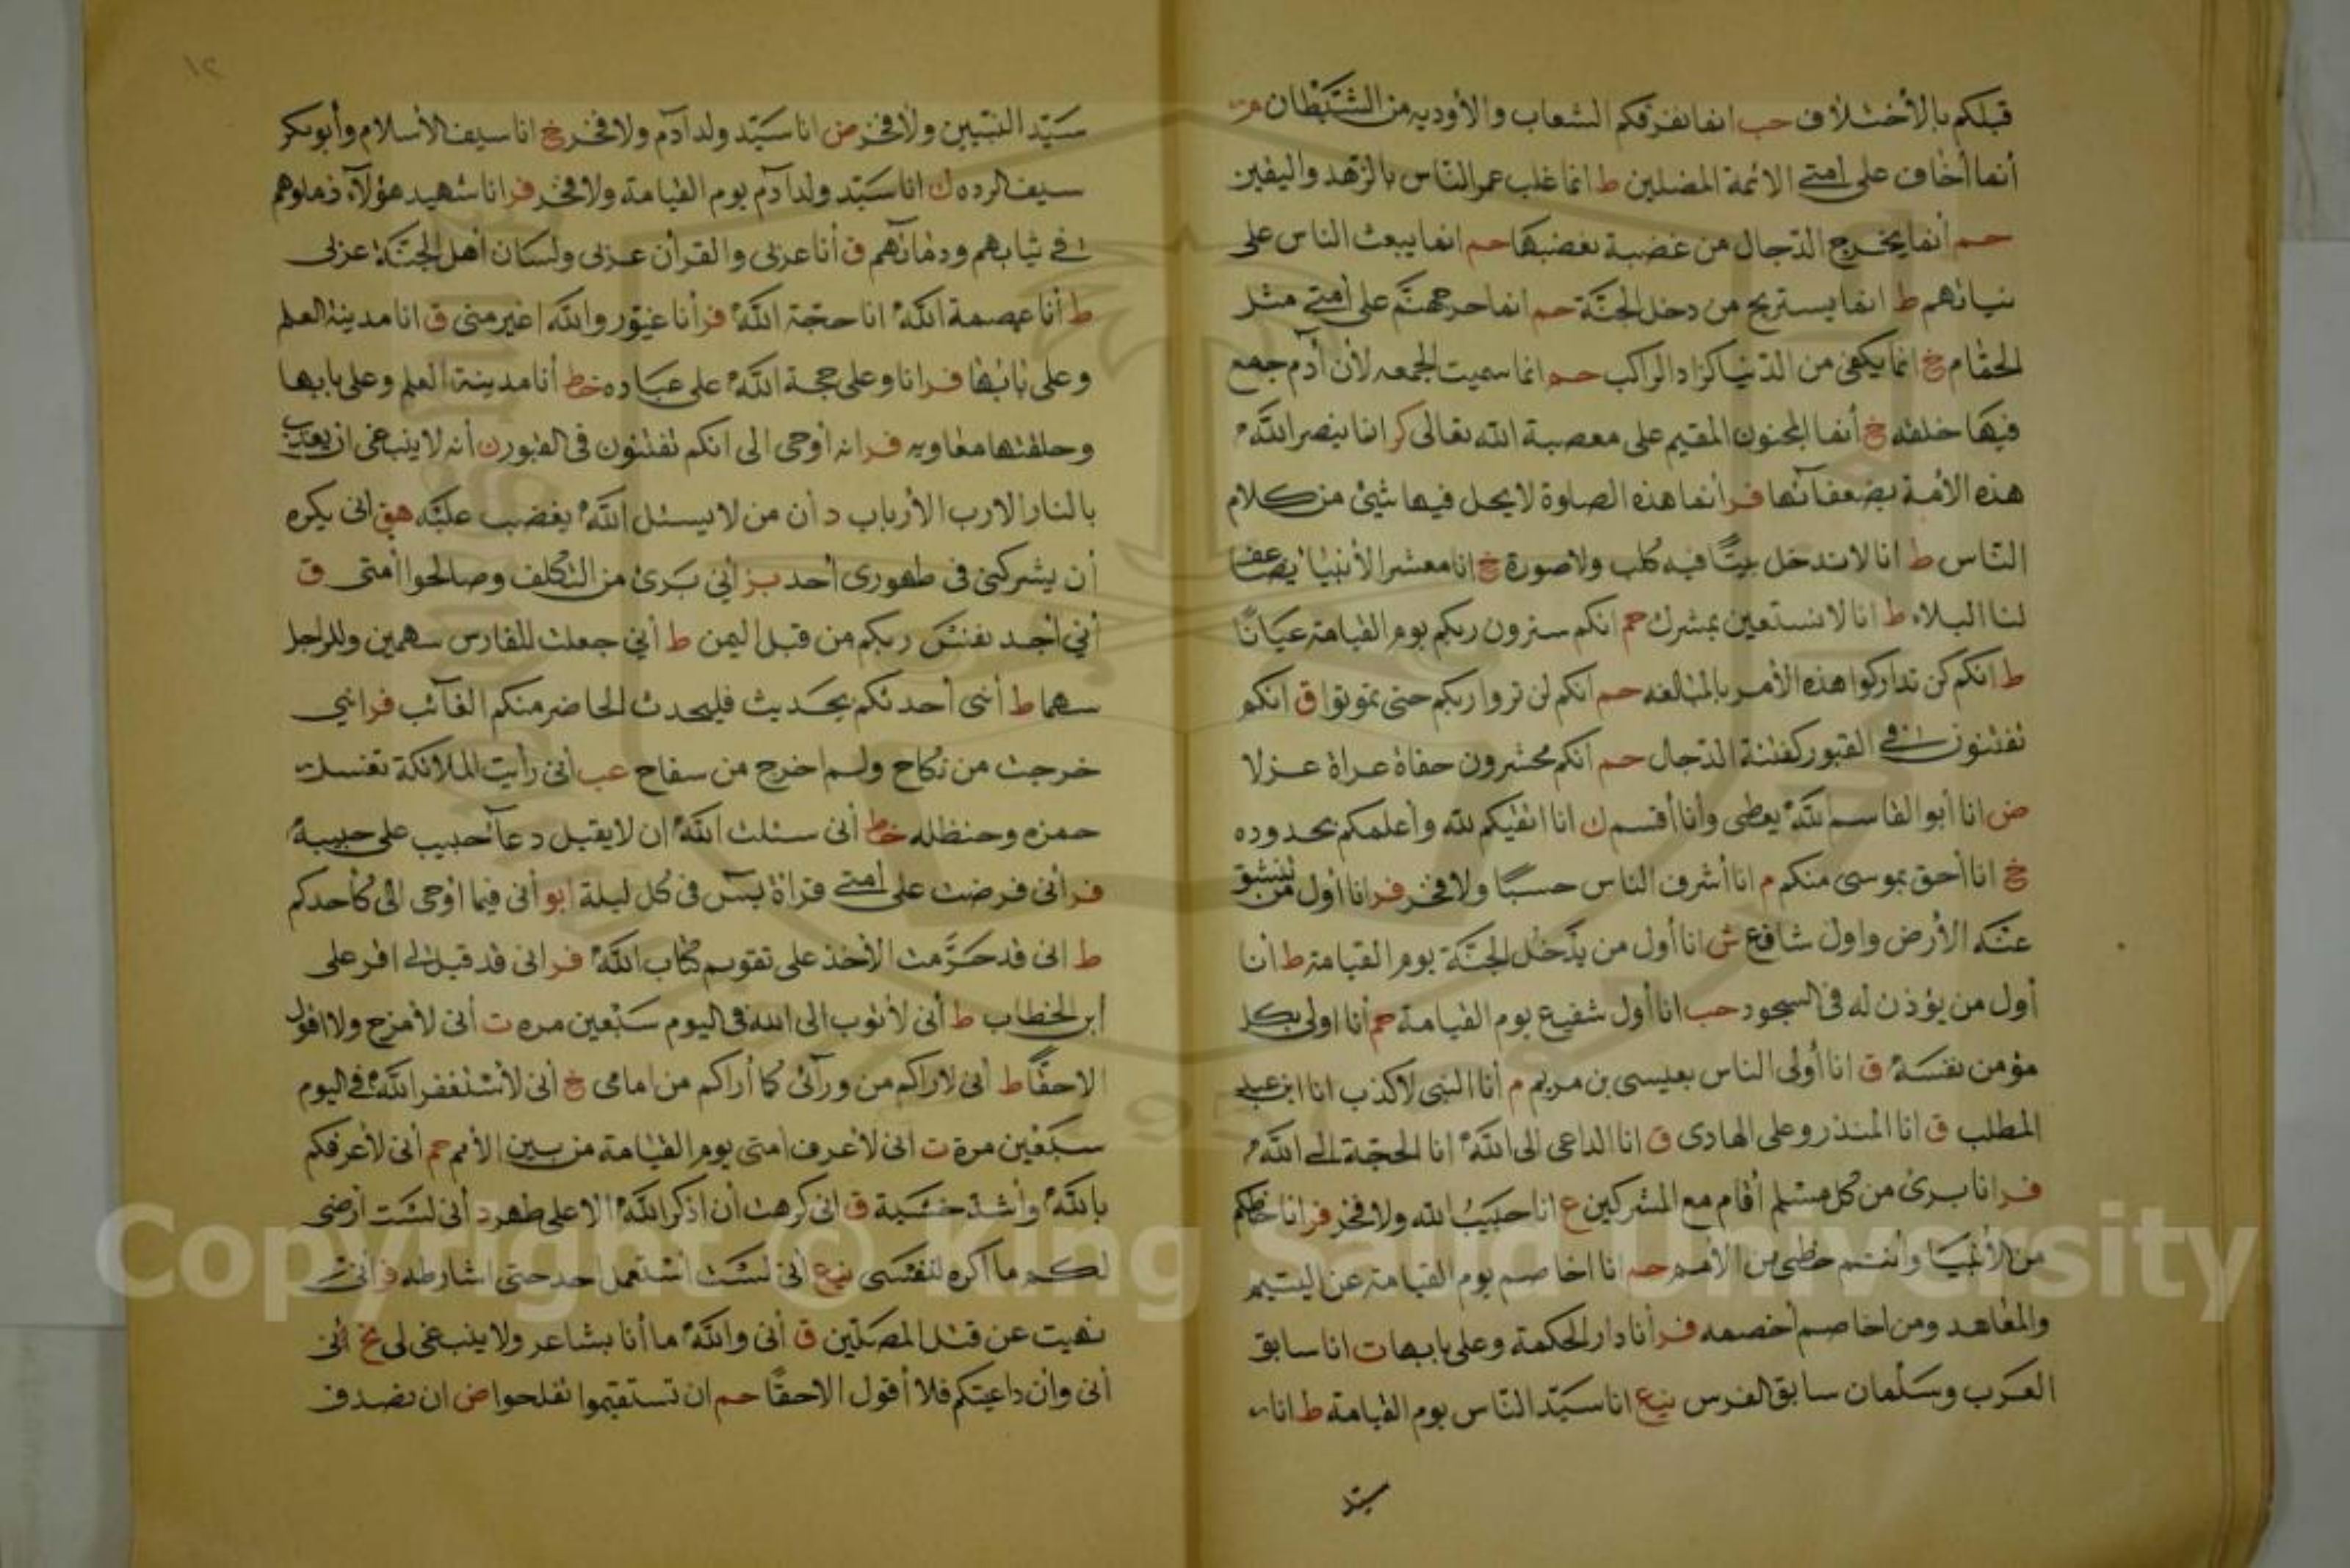 قبلكم بالأختلاف حب انما تفرقكم الشعاب والأوديه من الشيطان م
أنما أخاف على امتي الائمة المضلين ط انما غلب عمر الناس بالزهد واليقين
حم أنما يخرج الدجال من غضبة يغضبها حم انما يبعث الناس على
نياتهم ط انما يستريح من دخل الجنة حم انما حر جهنم على امتي مثل
الحمام خ انما يكفى من الدنيا كزاد الراكب حم انما سميت الجمعه لأن آدم جمع
فيها خلقه خ أنما المجنون المقيم على معصية الله تعالى كر انما ينصر الله
هذه الأمة بضعفائها فر أنما هذه الصلوة لا يحل فيها شئ من كلام
الناس ط انا لا ندخل بيتًا فيه كلب ولا صورة خ انا معشر الأنبيا يضاعف
لنا البلاء ط انا لا نستعين بمشرك حم انكم سترون ربكم يوم القيامة عيانًا
ط انكم لن تداركوا هذه الأمر بالمبالغه حم أنكم لن تروا ربكم حتى تموتوا ق انكم
تفتنون في القبور كفتنة الدجال حم أنكم محشرون حفاة عراة عزلا
ض انا أبو القاسم لله يعطى وأنا أقسم ك انا اتقيكم لله وأعلمكم بحدوده
خ انا أحق بموسى منكم م انا أشرف الناس حسبًا ولا فخر فر انا أول من تنشق
عنه الأرض واول شافع ش انا أول من يدخل الجنة يوم القيامة ط أنا
أول من يؤذن له فى السجود حب انا أول شفيع يوم القيامة حم أنا اولى بكل
مؤمن نفسه ق انا أولى الناس بعيسى بن مريم م أنا النبى لا كذب انا ابن عبد
المطلب ق انا المنذر وعلى الهادى ق انا الداعى الى الله انا الحجة الى الله
فر انا برئ من كل مسلم أقام مع المشركين ع انا حبيب الله ولا فخر فر انا حظكم
من الأنبيا وأنتم حظى من الأمم حم انا اخاصم يوم القيامة عن اليتيم
والمعاهد ومن اخاصم أخصمه فر أنا دار الحكمة وعلى بابها ت انا سابق
العرب وسلمان سابق الفرس نيع انا سيد الناس يوم القيامة ط انا
سيد
١٢
سيد النبيين ولا فخر ض انا سيد ولد آدم ولا فخر خ انا سيف الأسلام وأبو بكر
سيف الرده ك انا سيد ولد آدم يوم القيامة ولا فخر فر انا شهيد هؤلآء زملوهم
في ثيابهم ودمائهم ق أنا عربى والقرأن عربى ولسان أهل الجنة عربى
ط أنا عصمة الله انا حجة الله فر أنا غيور والله اغير منى ق انا مدينة العلم
وعلى بابها فر انا وعلى حجة الله على عباده خط أنا مدينة العلم وعلى بابها
وحلقتها معاويه فر انه أوحى الى انكم تفتنون فى القبور ن أنه لا ينبغى ان يعذب
بالنار الا رب الأرباب د أن من لا يسئل الله يغضب عليه هق انى يكره
أن يشركنى فى طهورى أحد بز أني برئ من التكلف وصالحوا أمتى ق
أني أجد نفس ربكم من قبل اليمن ط أني جعلت للفارس سهمين وللراجل
سهما ط أنى أحدثكم بحديث فليحدث الحاضر منكم الغائب فر انني
خرجت من نكاح ولم اخرج من سفاح عب أنى رأيت الملائكة تغسل
حمزه وحنظله خط أنى سئلت الله ان لا يقبل دعآ حبيب على حبيبه
فر أنى فرضت على أمتى قراة يس فى كل ليلة ابو أنى فيما اوحى الى كأحدكم
ط انى قد حرمت الأخذ على تقويم كتاب الله فر انى قد قبل
أبن الخطاب ط أنى لأتوب الى الله فى اليوم سبعين مره ت أنى لأمزح ولا اقول
الا حقًا ط أنى لاراكم من ورآئى كما أراكم من امامى خ أنى لأستغفر الله فى اليوم
سبعين مرة ت انى لأعرف امتى يوم القيامة من بين الأمم حم أنى لأعرفكم
بالله وأشد خشية ق انى كرهت أن اذكر الله الا على طهر د أنى لست أرضى
لكم ما أكره لنفسى نيع أنى لست استعمل احد حتى اشارطه فر أنى
نهيت عن قتل المصلين ق أنى والله ما أنا بشاعر ولا ينبغى لى نخ أنى
أنى وأن داعبتكم فلا أقول الا حقًا حم ان تستقيموا تفلحوا ض ان تصدق
Copyright © King Saud University
1957